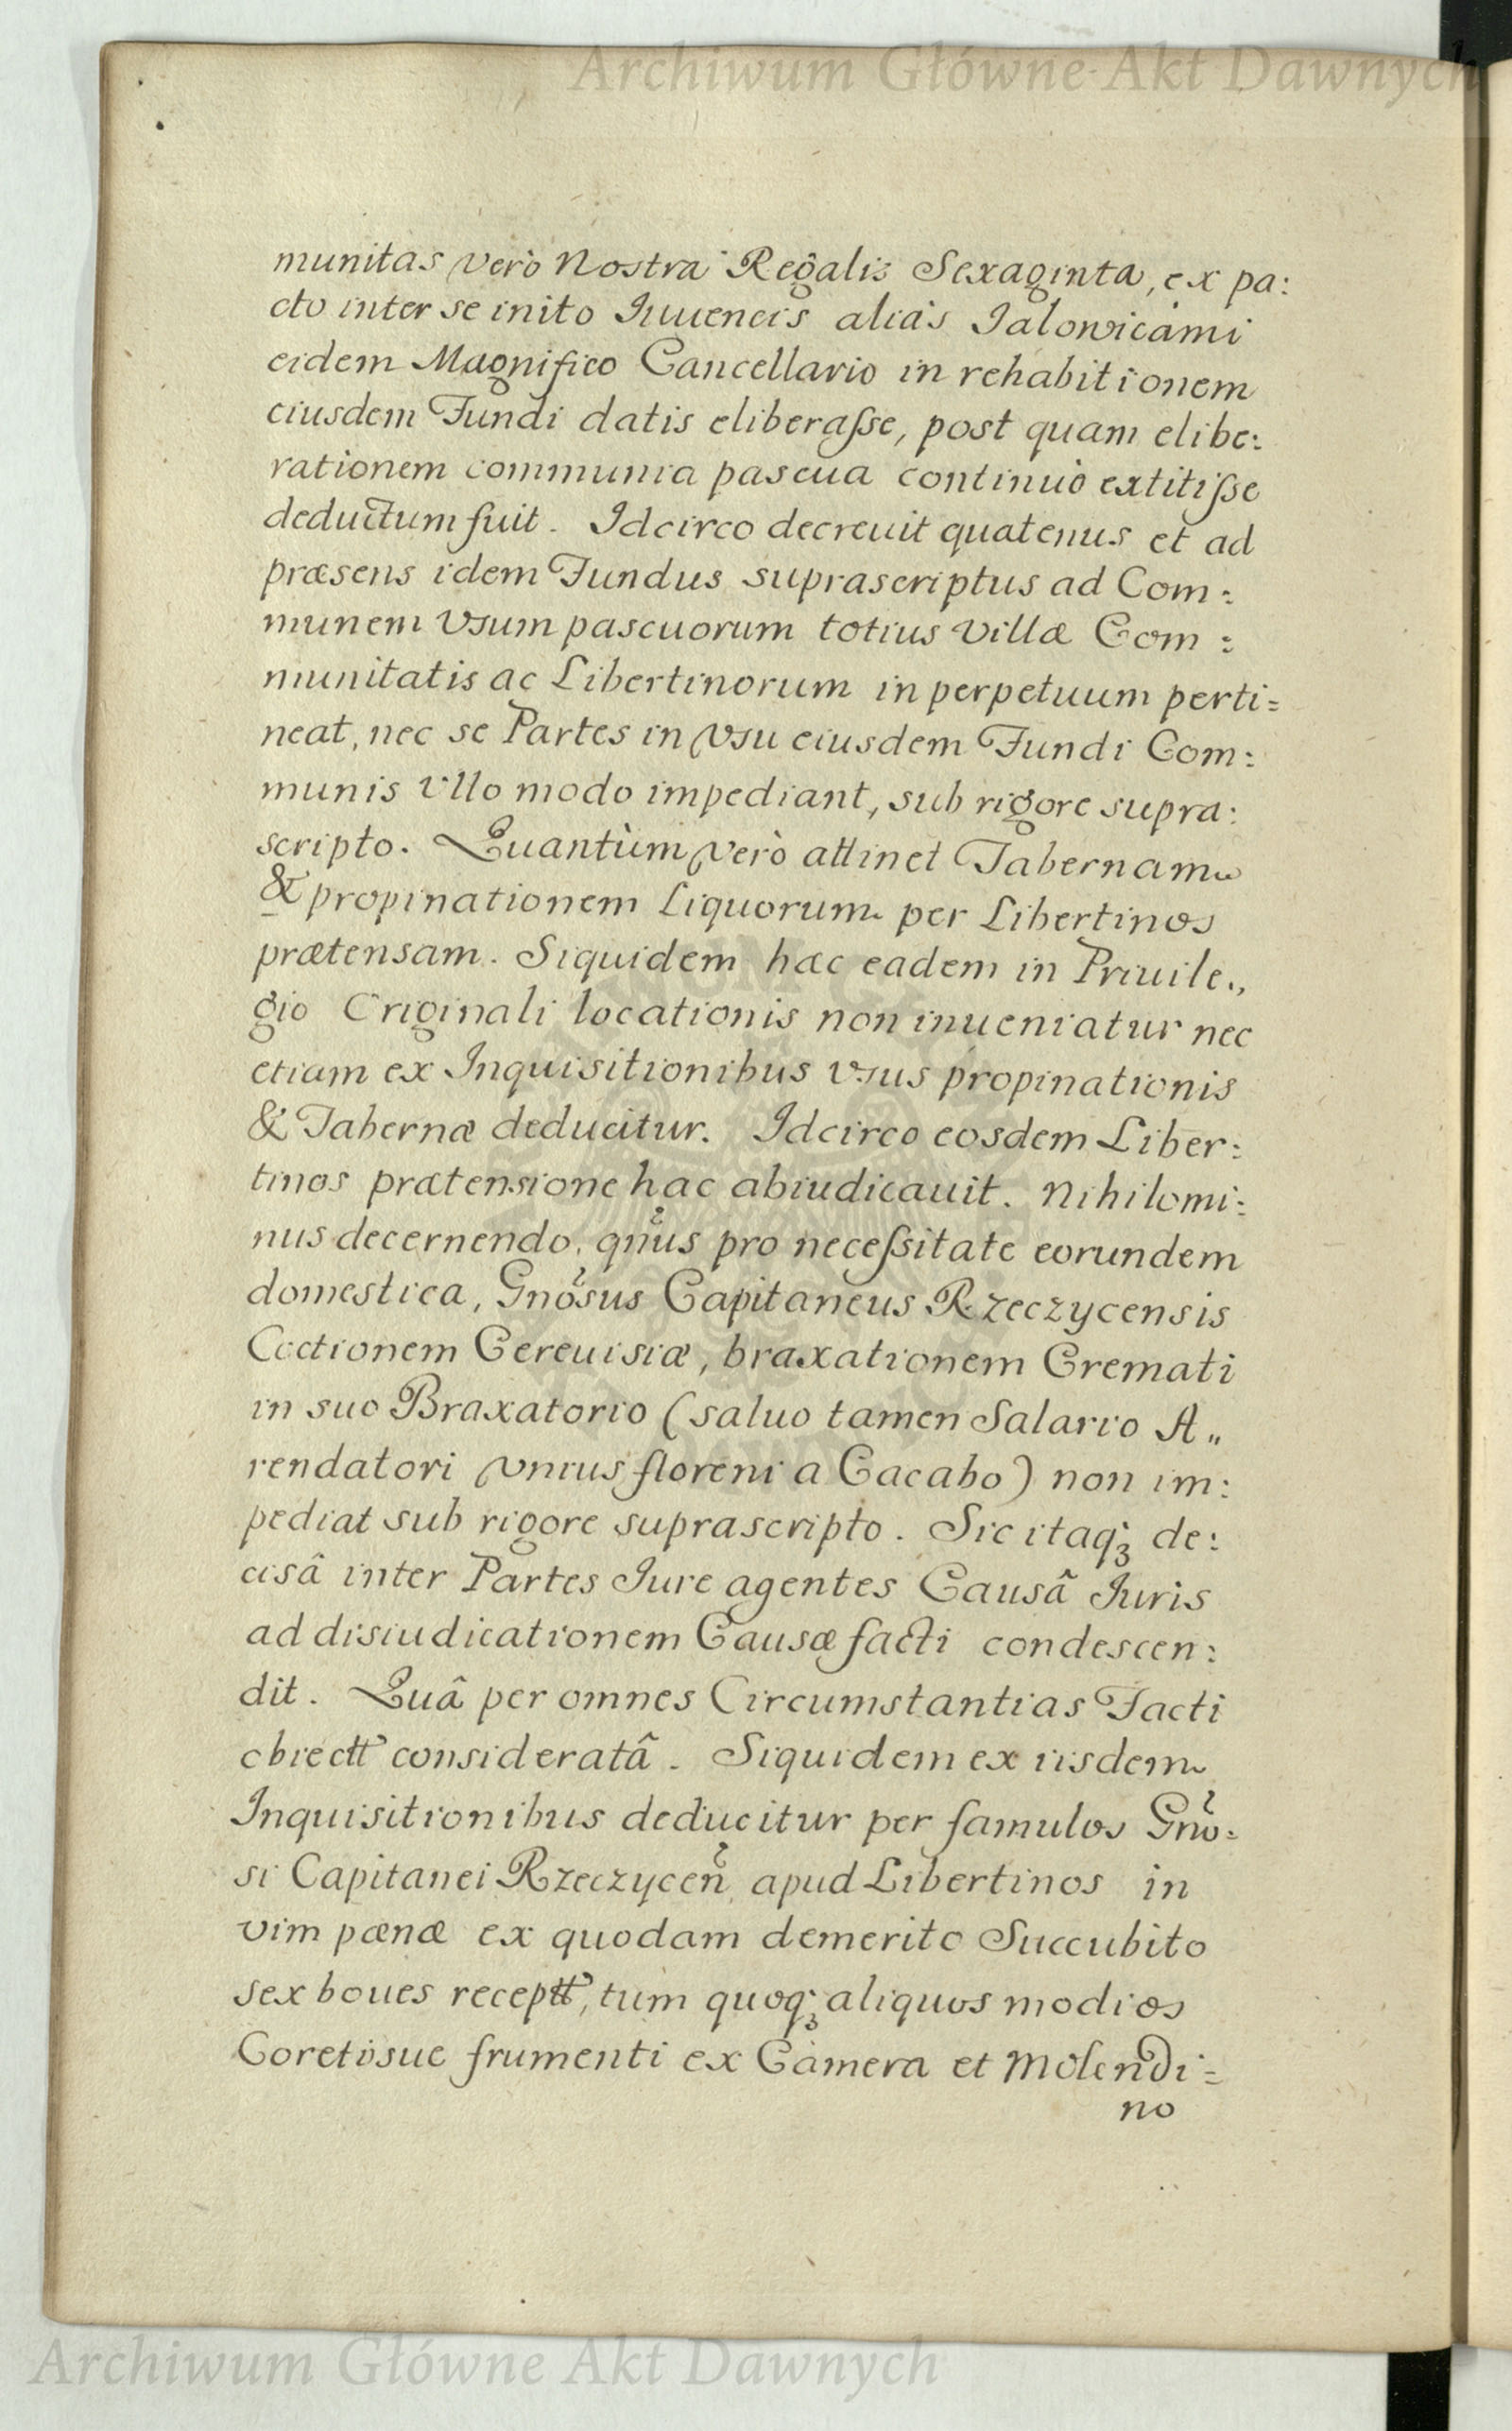 Archiwum Główne Akt Dawnych
munitas verò Nostra Regalis Sexaginta, ex pa:
cto inter se inito Iuuencis aliàs Ialowicami
eidem Magnifico Cancellario in rehabitionem
eiusdem Fundi datis eliberaſse, post quam elibe:
rationem communia pascua continuò extitiſse
deductum fuit. Idcirco decreuit quatenus et ad
præsens idem Fundus suprascriptus ad Com:
munem Vsum pascuorum totius Villæ Com:
munitatis ac Libertinorum in perpetuum perti=
neat, nec se Partes in Vsu eiusdem Fundi Com:
munis Vllo modo impediant, sub rigore supra:
scripto. Quantùm verò attinet Tabernam
& propinationem Liquorum per Libertinos
prætensam. Siquidem hæc eadem in Priuile„
gio Originali locationis non inueniatur nec
etiam ex Inquisitionibus Vsus propinationis
& Tabernæ deducitur. Idcirco eosdem Liber:
tinos prætensione hac abiudicauit. Nihilomi:
nus decernendo, qñus pro neceſsitate eorundem
domestica, Gnosus Capitaneus Rzeczycensis
Coctionem Cereuisiæ, braxationem Cremati
in suo Braxatorio (saluo tamen Salario A„
rendatori vnius floreni a Cacabo) non im:
pediat sub rigore suprascripto. Sic itaqꝫ de:
cisâ inter Partes Iure agentes Causâ Iuris
ad disiudicationem Causæ facti condescen:
dit. Quâ per omnes Circumstantias Facti
obiectt consideratâ. Siquidem ex iisdem
Inquisitionibus deducitur per famulos Gno:
si Capitanei Rzeczyceñ apud Libertinos in
vim pænæ ex quodam demerito Succubito
sex boues receptt, tum quoqꝫ aliquos modios
Coretosue frumenti ex Camera et Molendi=
no
Archiwum Główne Akt Dawnych